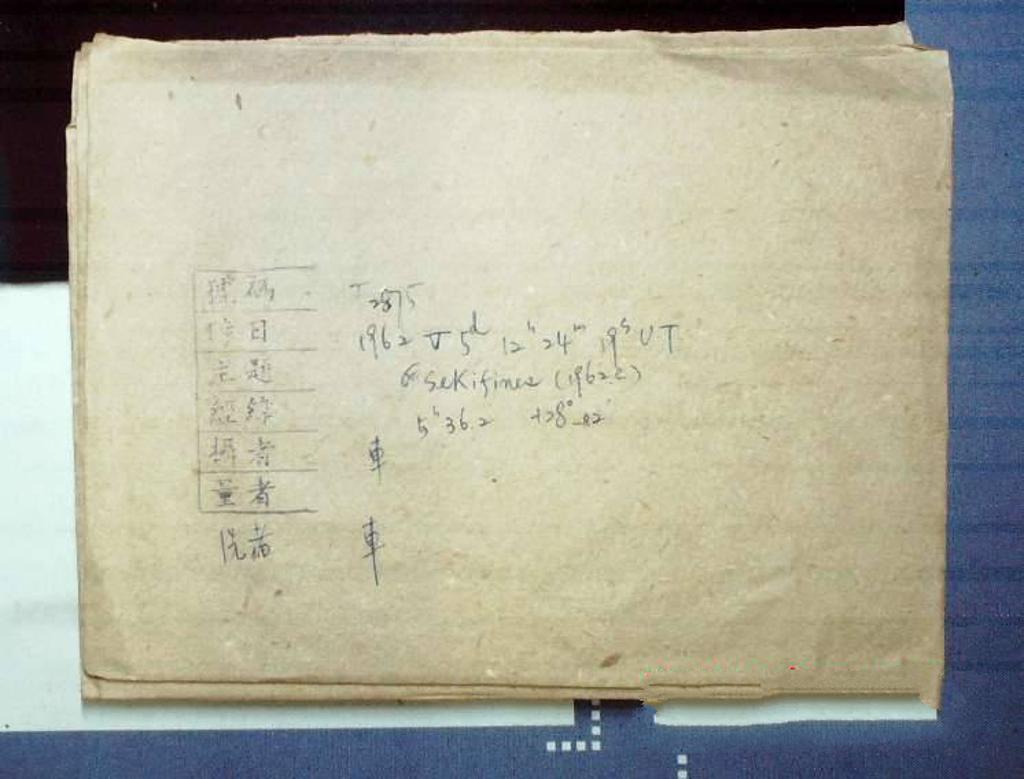 號碼 T 2875
作日 1962 V 5ᵈ 12ʰ 24ᵐ 19ˢ UT
主題 Seki-Lines (1962 c)
經緯 5ʰ 36.2 +28°
攝者 車
量者
洗者 車